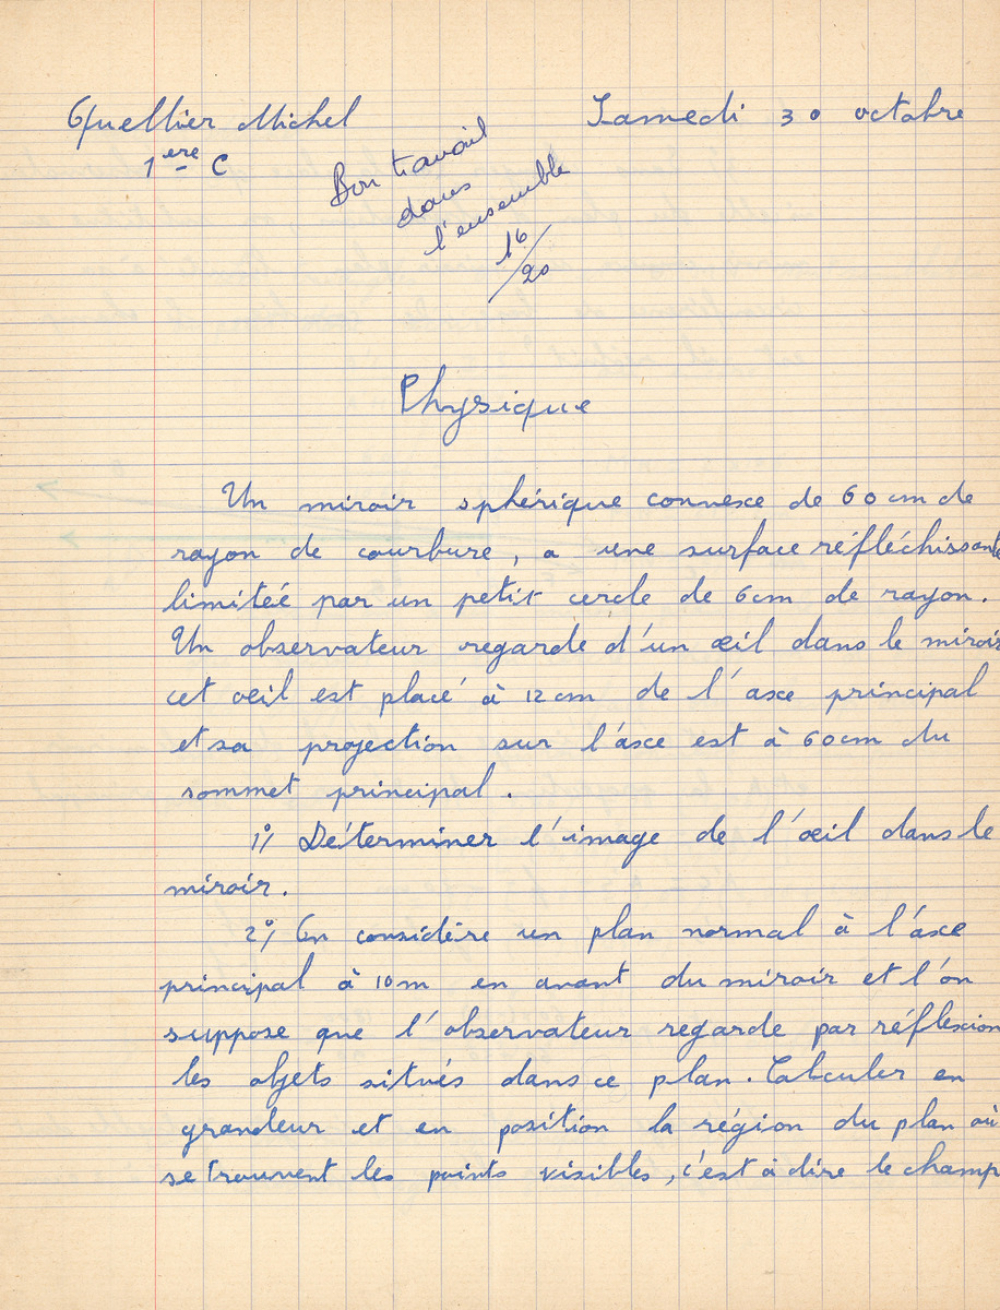 Quellier Michel
Samedi 30 octobre
1ère C
Bon travail
dans
l'ensemble
16/20
Physique
Un miroir sphérique convexe de 60 cm de
rayon de courbure, a une surface réfléchissante
limiteé par un petit cercle de 6cm de rayon.
Un observateur regarde d'un œil dans le miroir
cet oeil est placé à 12 cm de l'axe principal
et sa projection sur l'axe est à 60cm du
sommet principal.
1°/ Déterminer l'image de l'œil dans le
miroir.
2°/ On considère un plan normal à l'axe
principal à 10m en avant du miroir et l'on
suppose que l'observateur regarde par réflexion
les objets situés dans ce plan. Calculer en
grandeur et en position la région du plan où
se trouvent les points visibles, c'est à dire le champ